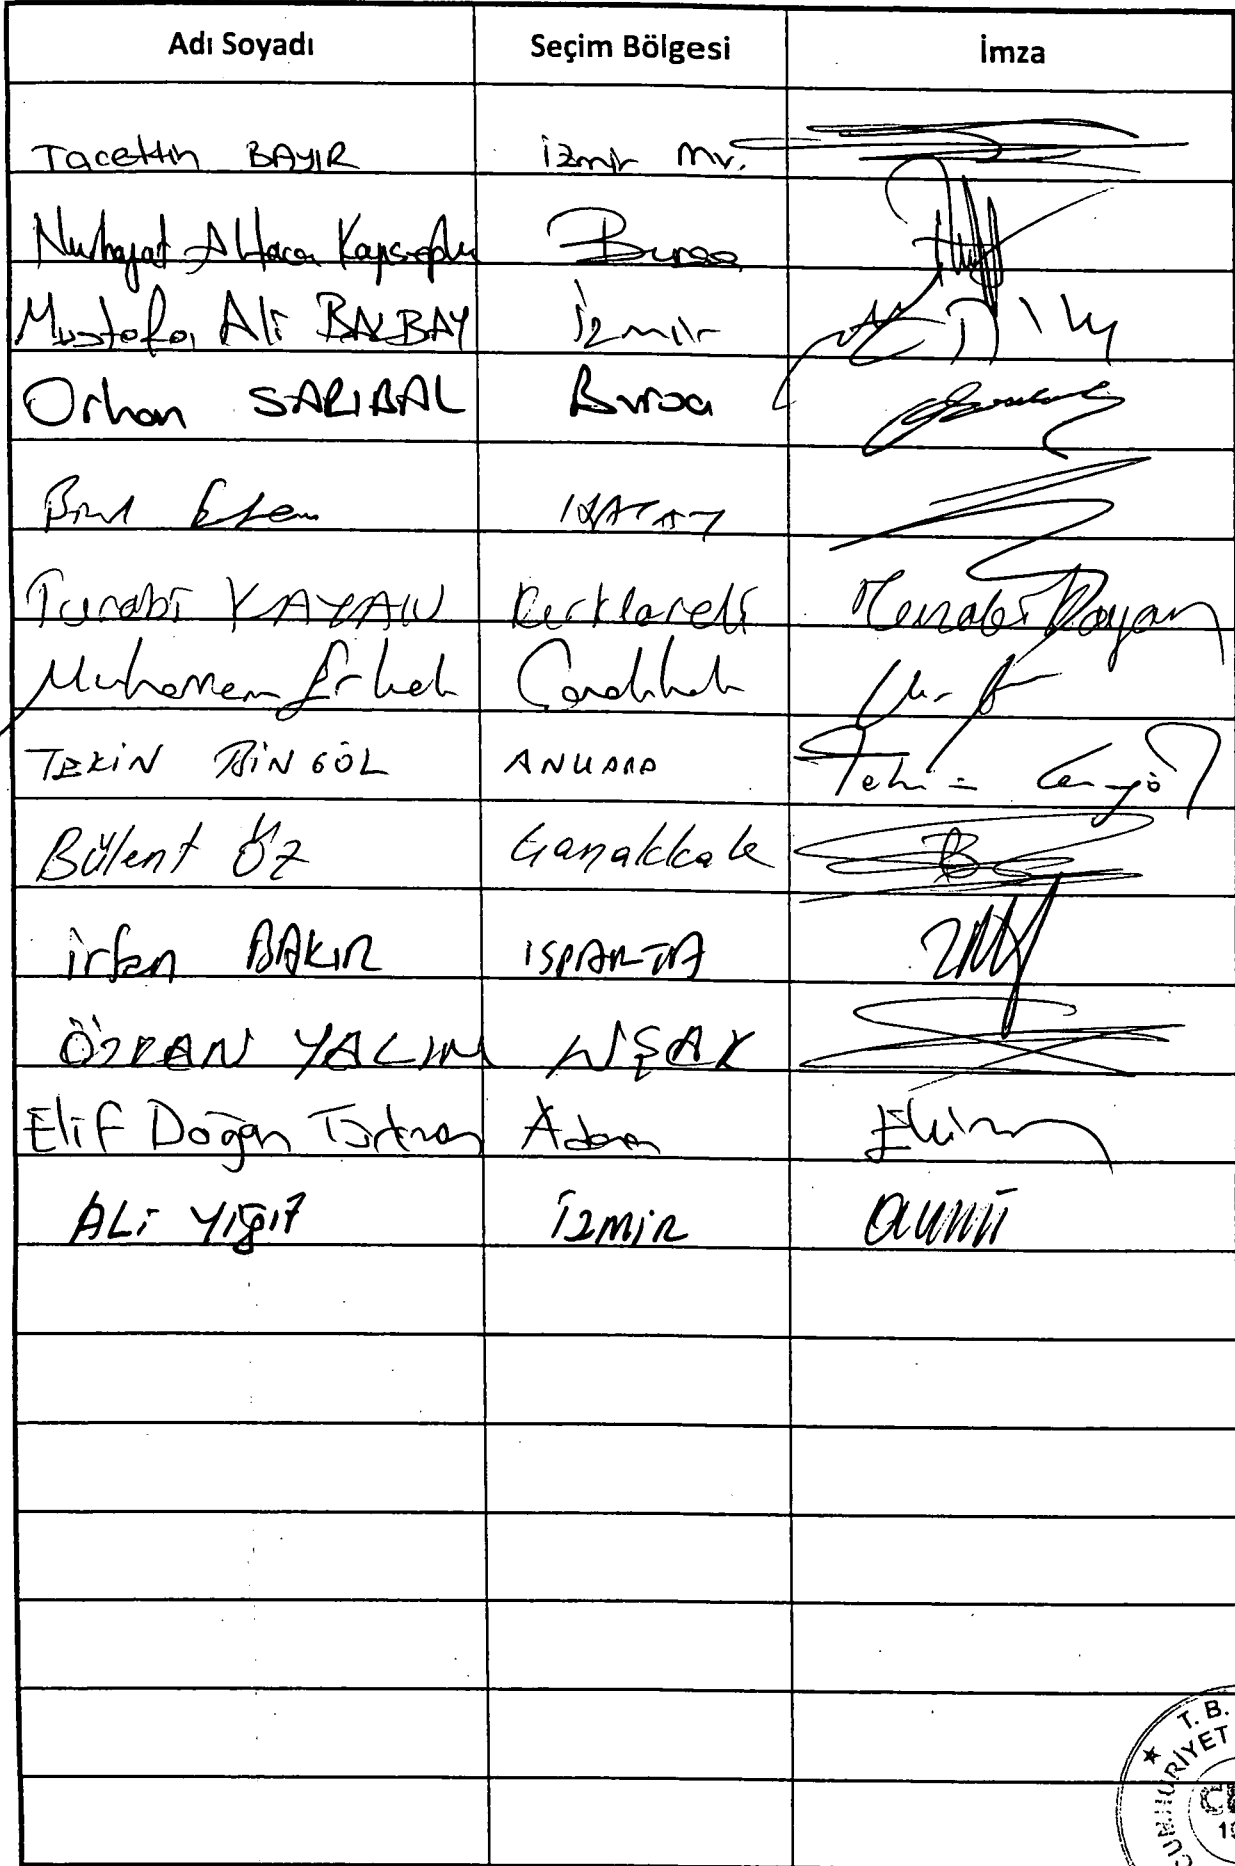 Adı Soyadı Seçim Bölgesi İmza
Tacettin BAYIR İzmir Mv.
Nurhayat Altaca Kayışoğlu Bursa
Mustafa Ali BALBAY İzmir
Orhan SARIBAL Bursa
Birol Ertem HATAY
Turabi KAYAN Kırklareli Turabi Kayan
Muharrem Erkek Çanakkale
TEKİN BİNGÖL ANKARA Tekin Bingöl
Bülent ÖZ Çanakkale
İrfan BAKIR ISPARTA
ÖZKAN YALIM UŞAK
Elif Doğan Türkmen Adana
ALİ YİĞİT İZMİR
T. B.
CUMHURİYET